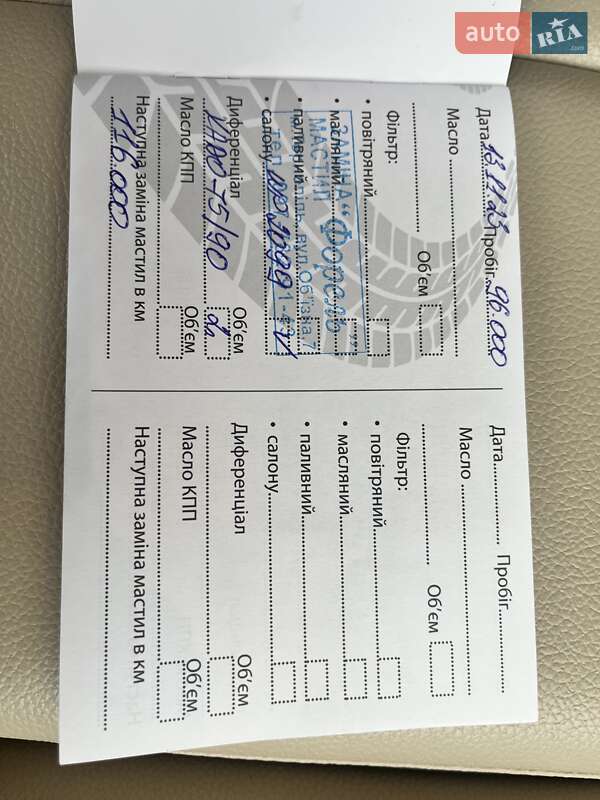 auto RIA .com
Дата 13.11.23 Пробіг 96.000
Масло
Об'єм
Фільтр:
• повітряний
• масляний
• паливний
• салону V
Диференціал Об'єм
75/90 2л
Масло КПП Об'єм
Наступна заміна мастил в км
116.000
ЗАМІНА "Форсаль"
МАСТИЛ
вул. Об'їзна, 7
тел.
Дата Пробіг
Масло
Об'єм
Фільтр:
• повітряний
• масляний
• паливний
• салону
Диференціал Об'єм
Масло КПП Об'єм
Наступна заміна мастил в км